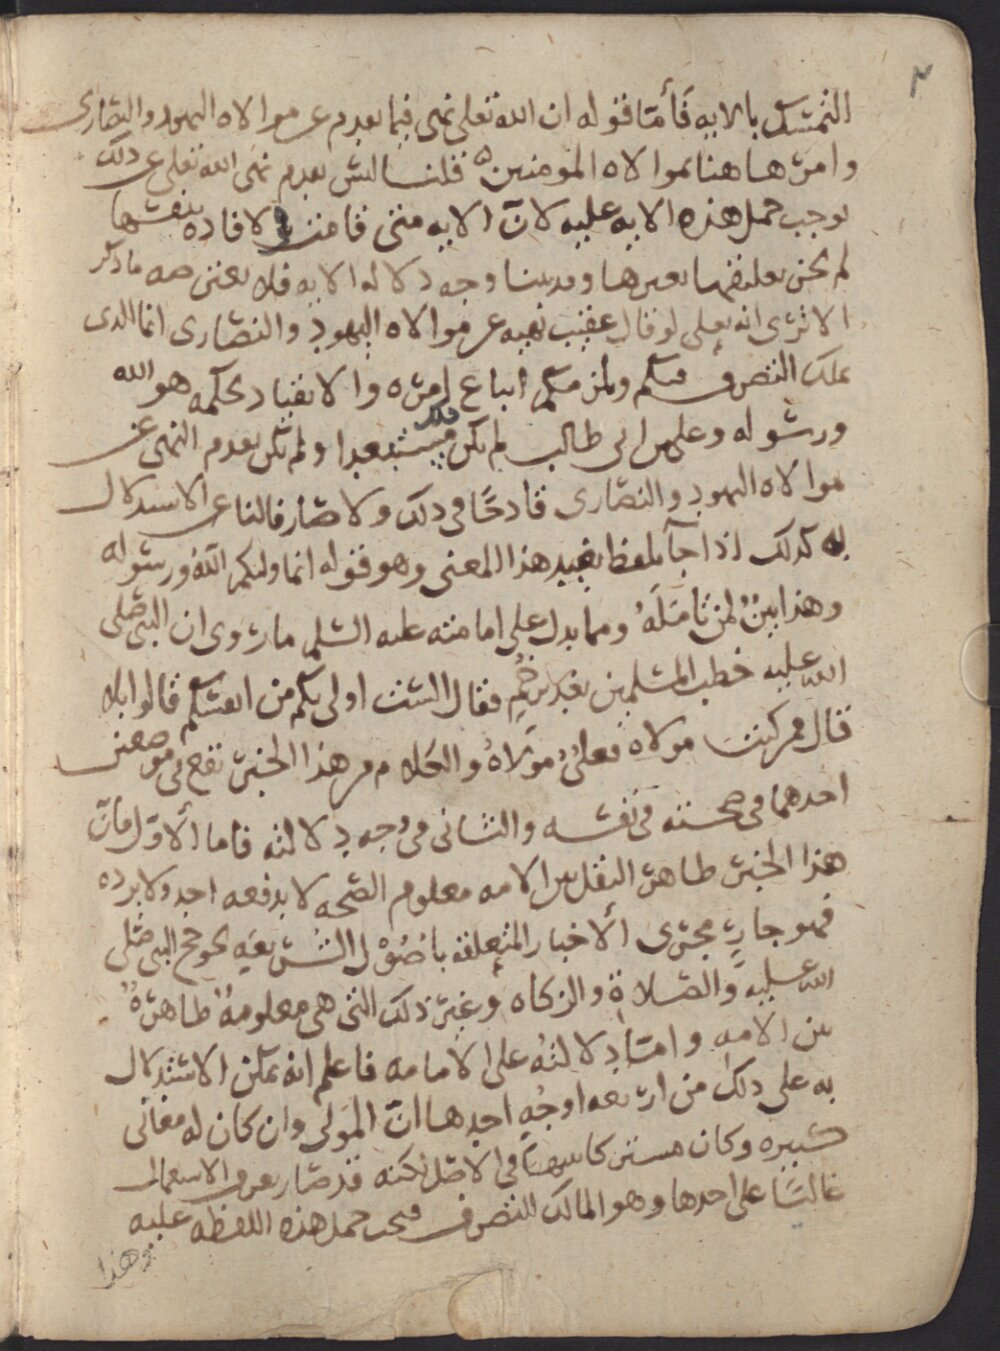 ٣
التمسك بالايه فأما قوله ان الله تعلى نهى فيما تقدم عن موالاه اليهود والنصارى
وامر هاهنا بموالاه المومنين ه قلنا ليس تقدم نهى الله تعلى عن ذلك
يوجب حمل هذه الايه عليه لان الايه متى قامت في الافاده بنفسها
لم يجز تعليقها بغيرها وقد بينا وجه دلاله الايه فلا يعترضه ما ذكر
الا ترى انه تعلى لو قال عقيب نهيه عن موالاه اليهود والنصارى انما الذى
يملك التصرف فيكم ويلزمكم اتباع امره والانقياد لحكمه هو الله
ورسوله وعلى بن ابى طالب لم يكن ذلك مستبعدا ولم يكن تقدم النهى عن
موالاه اليهود والنصارى قادحًا فى ذلك ولا صارفا لنا عن الاستدلال
به كذلك اذا جآ بلفظ يفيد هذا المعنى وهو قوله انما وليكم الله ورسوله
وهذا بينٌ لمن تأمله ومما يدل على امامته عليه السلم ما روى ان النبى صلى
الله عليه خطب المسلمين بغدير خمٍ فقال الست اولى بكم من انفسكم قالوا بلا
قال فمن كنت مولاه فعلىٌ مولاهُ والكلام فى هذا الخبر يقع فى موضعين
احدهما فى صحته فى نفسه والثانى فى وجه دلالته فاما الاول فان
هذا الخبر ظاهر النقل بين الامه معلوم الصحه لا يدفعه احد ولا يرده
فهو جارٍ مجرى الاخبار المتعلقه باصول الشريعه نحو حج النبى صلى
الله عليه والصلاة والزكاه وغير ذلك التى هى معلومهٌ ظاهرةٌ
بين الامه واما دلالتهُ على الامامه فاعلم انه يمكن الاستدلال
به على ذلك من اربعه اوجهٍ احدها ان المولى وان كان له معانى
كثيره وكان مشتركا بينها فى الاصل لكنه قد صار بعرف الاستعمال
غالبًا على احدها وهو المالك للتصرف فيجب حمل هذه اللفظه عليه
وهذا